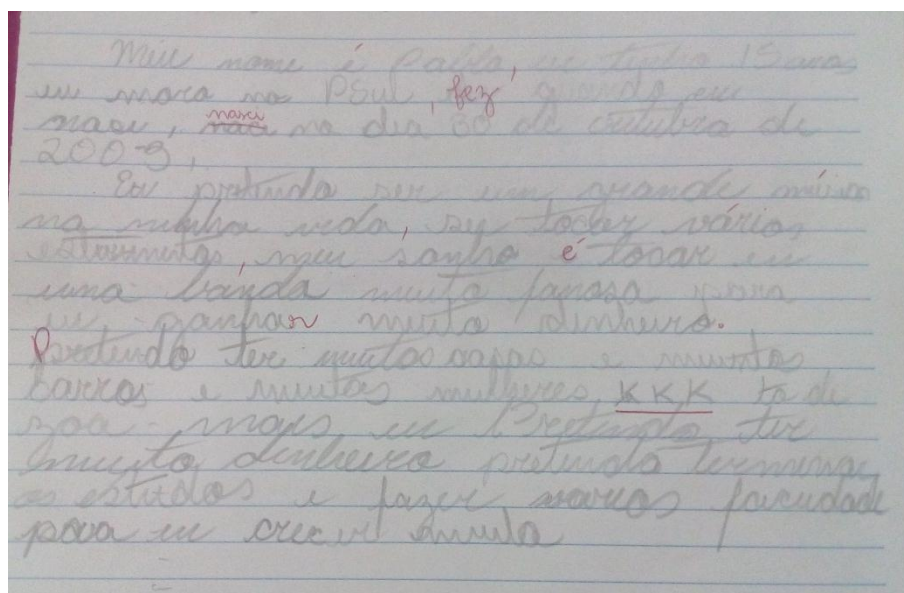 Meu nome é Pablo, eu tenho 15 anos
eu moro no PSul, fez quando eu
nasci, nasci no dia 30 de outubro de
2009,
Eu pretendo ser um grande músico
na minha vida, sei tocar vários
meu sonho é tocar em
uma banda muito famosa para
eu ganhar muito dinheiro.
Pretendo ter muitos casas e muintos
carros e muitas mulheres KKK to de
zoa mais eu Pretendo ter
muito dinheiro pretendo termina
os estudos e fazer varias faculdade
para eu crecer muito